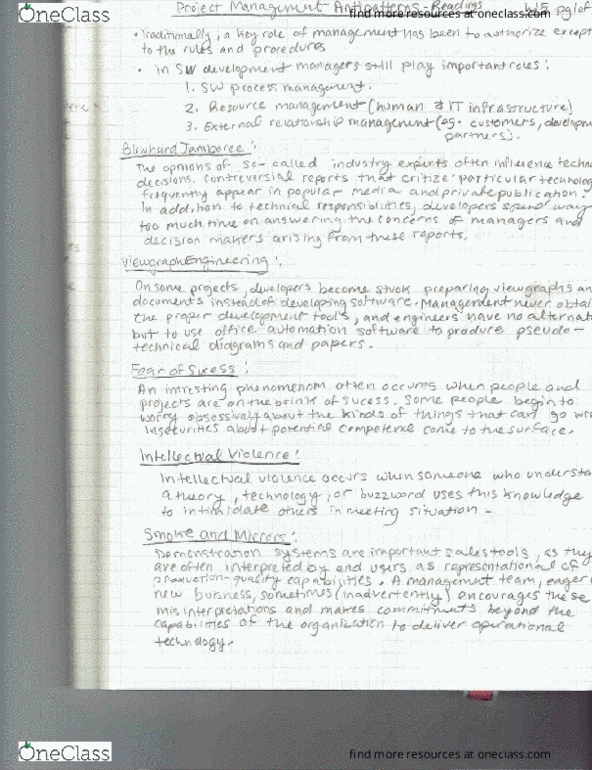 OneClass
find more resources at oneclass.com
Project Management Antipatterns - Readings W5 pg1of
• Traditionally, a key role of management has been to authorize except
to the rules and procedures
• in SW development managers still play important roles:
1. SW process management.
2. Resource management (human & IT infrastructure)
3. External relationship management (eg. customers, developm
partners).
Blowhard Jamboree:
The opnions of so-called industry experts often influence techno
decisions. Controversial reports that critize particular technolog
frequently appear in popular media and private publication.
In addition to technical responsibilities, developers spend way
too much time on answering the concerns of managers and
decision makers arising from these reports.
Viewgraph Engineering:
On some projects, developers become stuck preparing viewgraphs an
documents instead of developing software. Management never obtai
the proper development tools, and engineers have no alternat
but to use office automation software to produce pseudo-
technical diagrams and papers.
Fear of Sucess:
An intresting phenomenom often occures when people and
projects are on the brink of sucess. Some people begin to
worry obsessively about the kinds of things that can go wro
Insecurities about potential competence come to the surface.
Intellectual Violence:
Intellectual violence occurs when someone who understa
a theory, technology, or buzzword uses this knowledge
to intimidate others in meeting situation -
Smoke and Mirrors:
Demonstration systems are important sales tools, as they
are often interpreted by end users as representational of
production-quality capabilities. A management team, eager
new business, sometimes (inadvertently) encourages these
misinterpretations and makes commitments beyond the
capabilities of the organization to deliver operational
technology.
OneClass
find more resources at oneclass.com